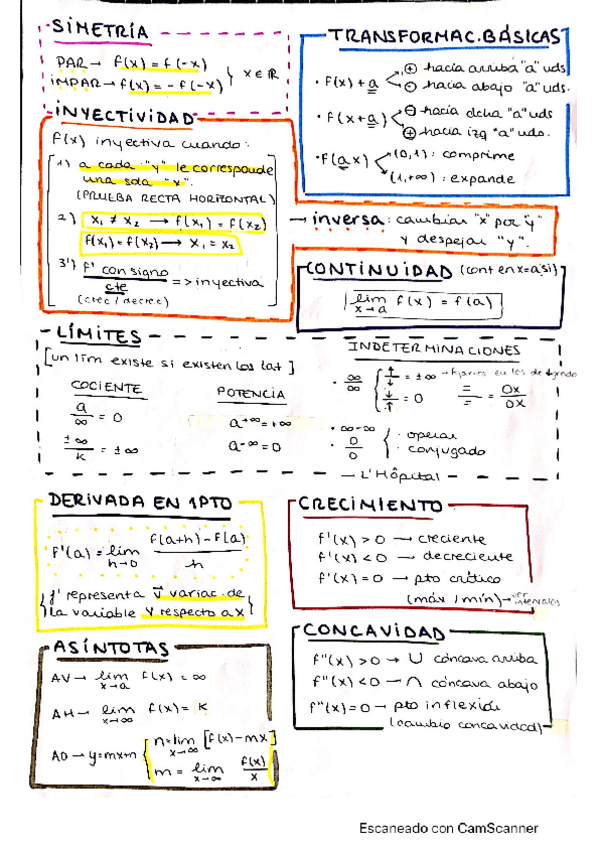 SIMETRÍA
PAR → f(x) = f(-x)
IMPAR → f(x) = - f(-x) } x ∈ ℝ
TRANSFORMAC. BÁSICAS
· f(x) + a < ⊕ hacia arriba "a" uds
⊖ hacia abajo "a" uds.
· f(x+a) < ⊖ hacia dcha "a" uds
⊕ hacia izq "a" uds.
· f(ax) < (0,1) : comprime
(1,+∞) : expande
INYECTIVIDAD
f(x) inyectiva cuando:
1) a cada "y" le corresponde
una sola "x".
(PRUEBA RECTA HORIZONTAL)
2) x₁ ≠ x₂ → f(x₁) = f(x₂)
f(x₁) = f(x₂) → x₁ = x₂
3) f' con signo
cte => inyectiva
(crec / decrec)
→ inversa: cambiar "x" por "y"
y despejar "y".
CONTINUIDAD (cont en x=a si)
lim f(x) = f(a)
x→a
LÍMITES
[un lím existe si existen los lat]
COCIENTE
a/∞ = 0
±∞/k = ±∞
POTENCIA
a^+∞ = +∞
a^-∞ = 0
INDETERMINACIONES
· ∞/∞ { ↑/↓ = ±∞ → fijarnos en los de grado
↓/↑ = 0
=/= = 0x/0x
· ∞-∞
· 0/0 { · operar
· conjugado
— L'Hôpital
DERIVADA EN 1PTO
f'(a) = lim f(a+h) - f(a) / h
h→0
f' representa v variac. de
la variable y respecto a x
CRECIMIENTO
f'(x) > 0 → creciente
f'(x) < 0 → decreciente
f'(x) = 0 → pto crítico
(máx / mín) → ver intervalos
ASÍNTOTAS
AV → lim f(x) = ∞
x→a
AH → lim f(x) = K
x→∞
AO → y=mx+n { n = lim [f(x) - mx]
x→∞
m = lim f(x)/x
x→∞
CONCAVIDAD
f''(x) > 0 → ∪ cóncava arriba
f''(x) < 0 → ∩ cóncava abajo
f''(x) = 0 → pto inflexión
(cambio concavidad)
Escaneado con CamScanner